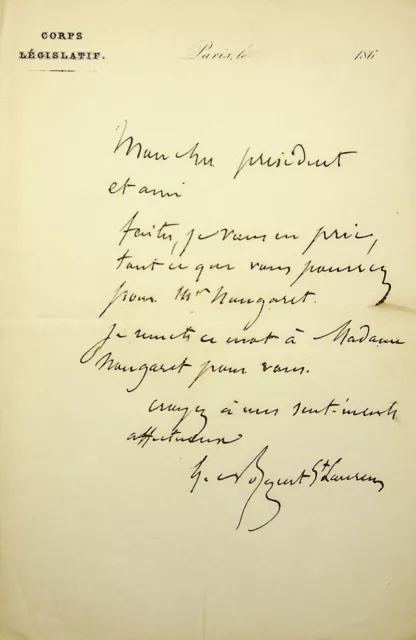 CORPS
LÉGISLATIF.
Paris, le 186
Mon cher président
et ami
faites, je vous en prie,
tout ce que vous pourrez
pour Mr Nougaret.
Je remets ce mot à Madame
Nougaret pour vous.
croyez à mes sentiments
affectueux
G. Nogent St Laurens